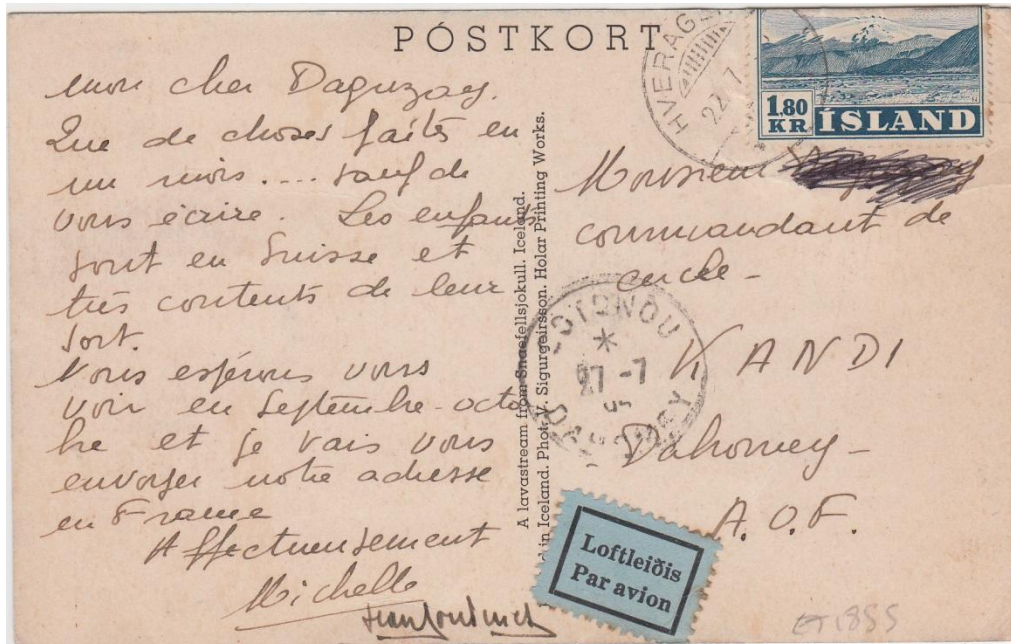 PÓSTKORT
mon cher Daguzay.
Que de choses faites en
un mois.... sauf de
vous écrire. Les enfants
sont en Suisse et
très contents de leur
sort.
Nous espérons vous
voir en Septembre-octo
bre et je vais vous
envoyer notre adresse
en France
Affectueusement
Michelle
A lavastream from Snaefellsjokull. Iceland.
d in Iceland. Phot. V. Sigurgeirsson. Holar Printing Works.
HVERAG
22.7
1.80
KR ÍSLAND
Monsieur
commandant de
cercle-
KANDI
Dahomey-
A.O.F.
COTONOU
27-7
DAHOMEY
Loftleiðis
Par avion
ET1855